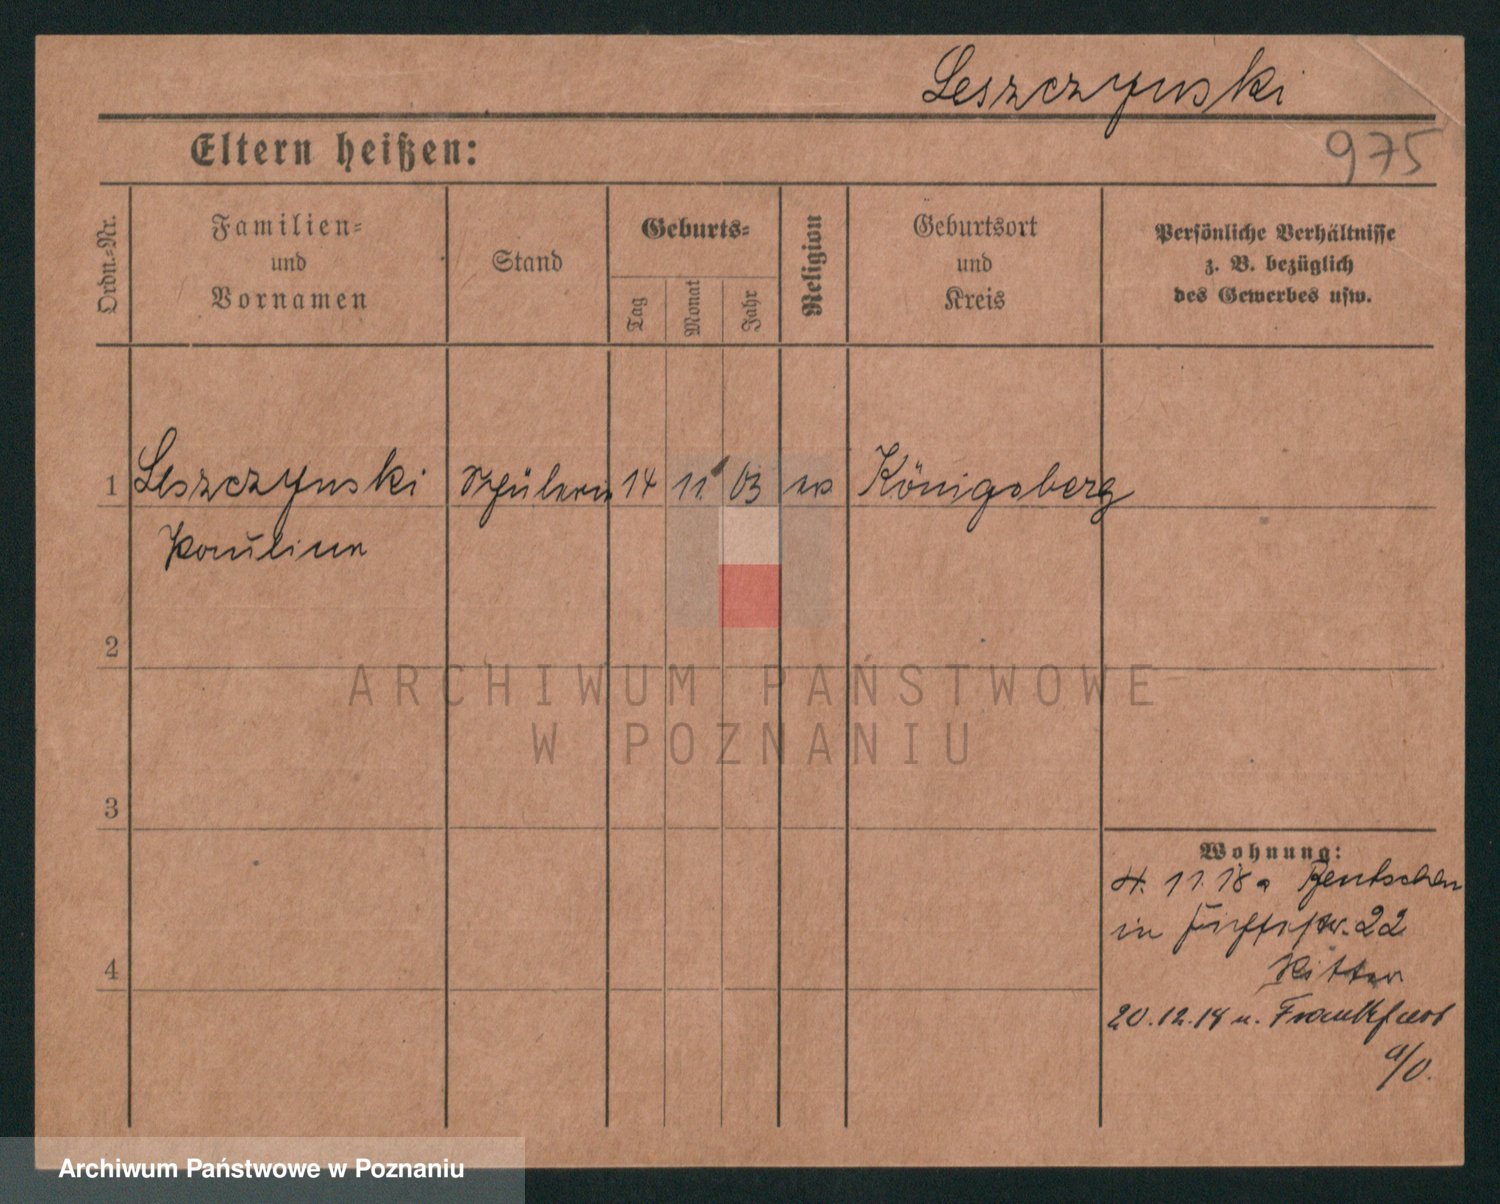 Leszczynski
975
Eltern heißen:
Ordn.-Nr.
Familien-
und
Vornamen
Stand
Geburts-
Tag
Monat
Jahr
Religion
Geburtsort
und
Kreis
Persönliche Verhältnisse
z. B. bezüglich
des Gewerbes usw.
1 Leszczynski Schülerin 14 11. 03 ev Königsberg
Pauline
2
ARCHIWUM PAŃSTWOWE
W POZNANIU
3
Wohnung:
4. 11. 18 a Bentschen
in 22
Ritter
4
20.12.18 n. Frankfurt
a/O.
Archiwum Państwowe w Poznaniu